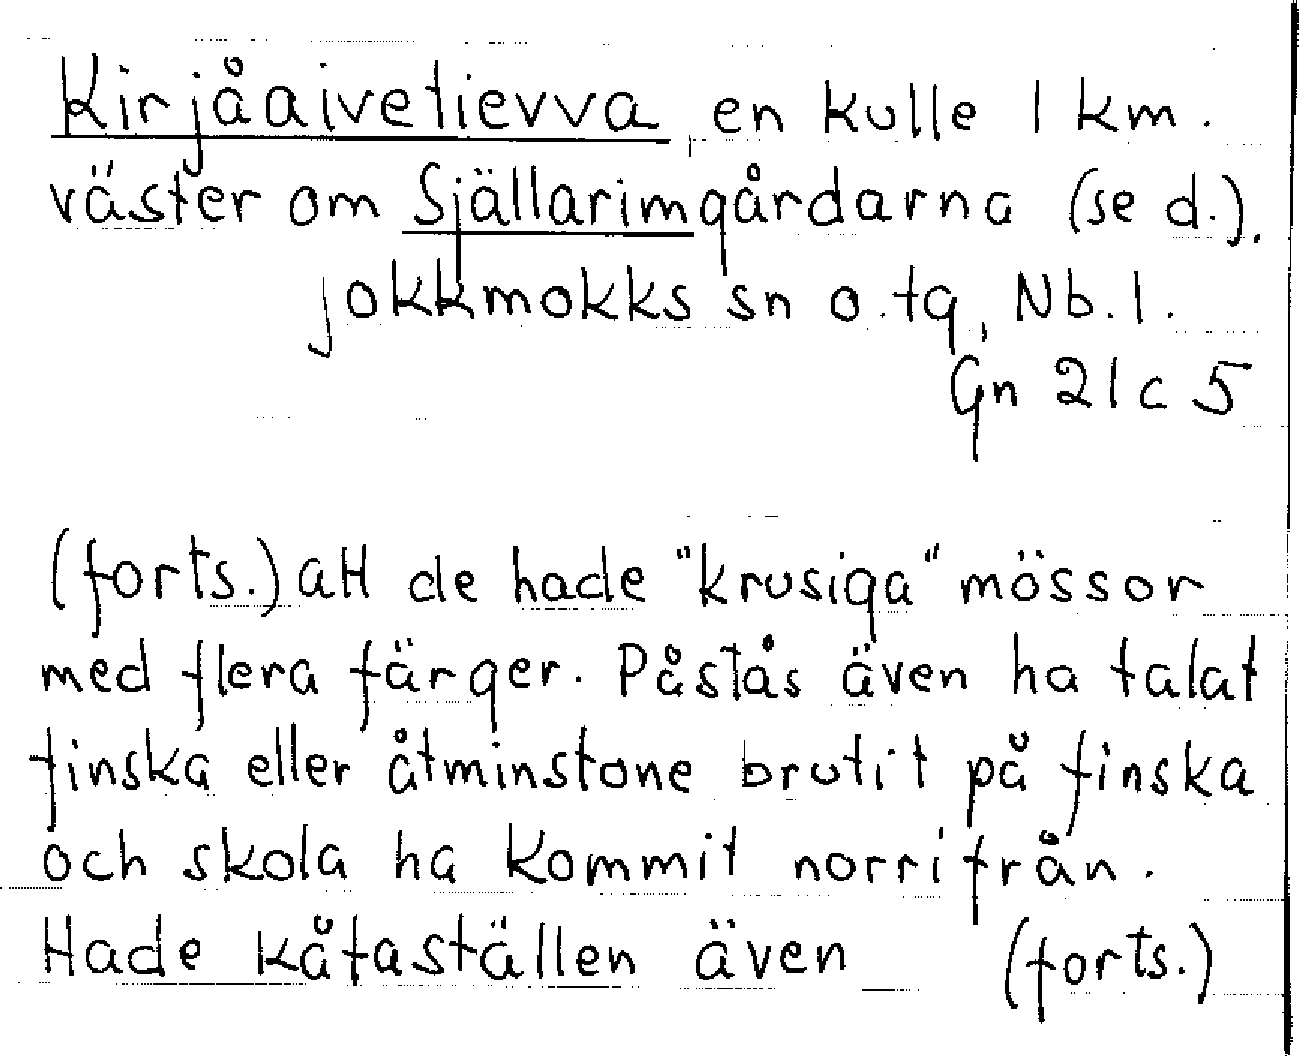 Kirjåaivetievva, en kulle 1 km.
väster om Själlarimgårdarna (se d.).
Jokkmokks sn o. tg, Nb. l.
Gn 21 c 5
(forts.) att de hade "krusiga" mössor
med flera färger. Påstås även ha talat
finska eller åtminstone brutit på finska
och skola ha kommit norrifrån.
Hade kåtaställen även (forts.)